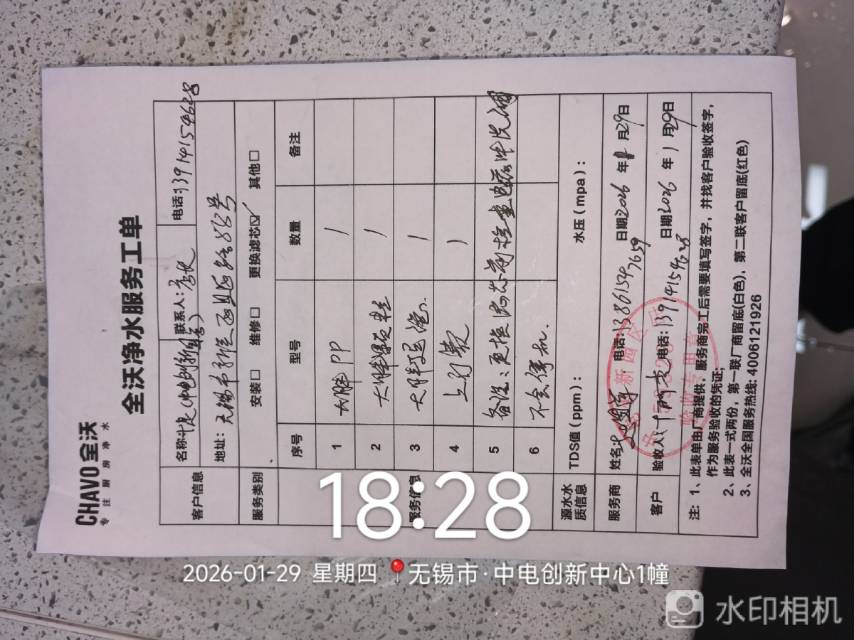 CHAVO全沃
专注厨房净水
全沃净水服务工单
客户信息 名称: 联系人: 电话:13914154628
地址: 无锡市新
服务类别 安装□ 维修□ 更换滤芯☑ 其他□
服务信息 序号 型号 数量 备注
1 大胖PP 1
2 大胖 1
3 大胖 1
4 1
5 备注:更换滤芯前检查
6 不会停机.
源水水质信息 TDS值(ppm): 水压(mpa):
服务商 姓名: 电话:13861547659 日期2026年1月29日
客户 验收人: 电话:13914154628 日期2026年1月29日
注: 1、此表单由厂商提供,服务商完工后需要填写签字,并找客户验收签字,
作为服务验收的凭证;
2、此表一式两份,第一联厂商留底(白色),第二联客户留底(红色)
3、全沃全国服务热线:4006121926
18:28
2026-01-29 星期四 无锡市·中电创新中心1幢
水印相机